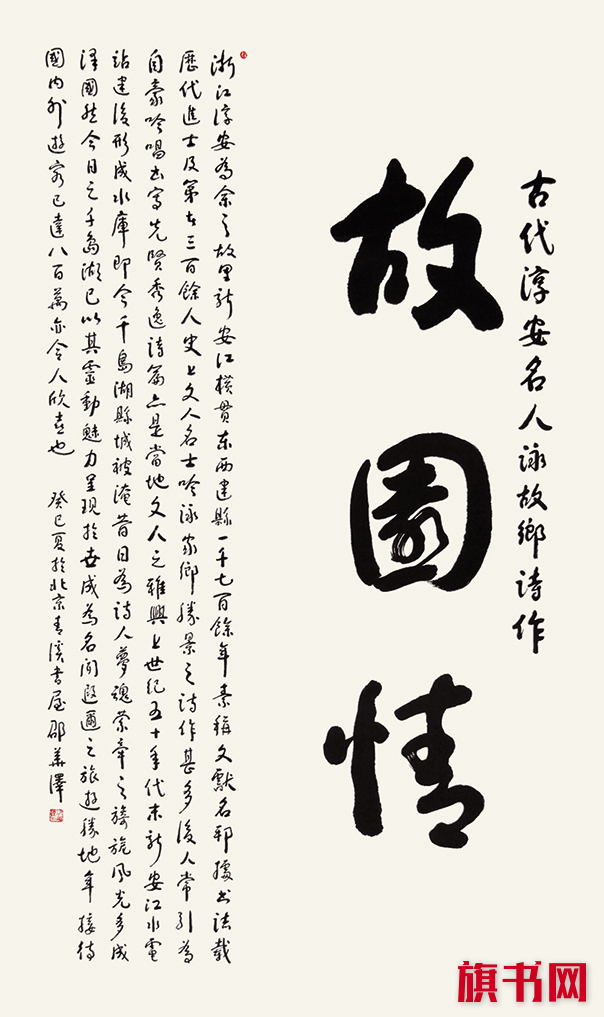 古代淳安名人詠故鄉詩作
故園情
浙江淳安為余之故里新安江橫贯东西建縣一千七百餘年素稱文獻名邦據史誌載
歷代進士及第者三百餘人史上文人名士吟詠家鄉勝景之詩作甚多後人常引為
自豪吟唱书寫先賢秀逸詩篇亦是當地文人之雅興上世纪五十年代末新安江水電
站建後形成水庫即今千島湖縣城被淹昔日為詩人夢魂縈牵之旖旎風光多成
澤國然今日之千島湖已以其靈動魅力呈現於世成為名聞遐邇之旅遊勝地年接待
國内外遊客已達八百萬亦令人欣喜也 癸巳夏於北京青溪書屋邵華澤
旗书网